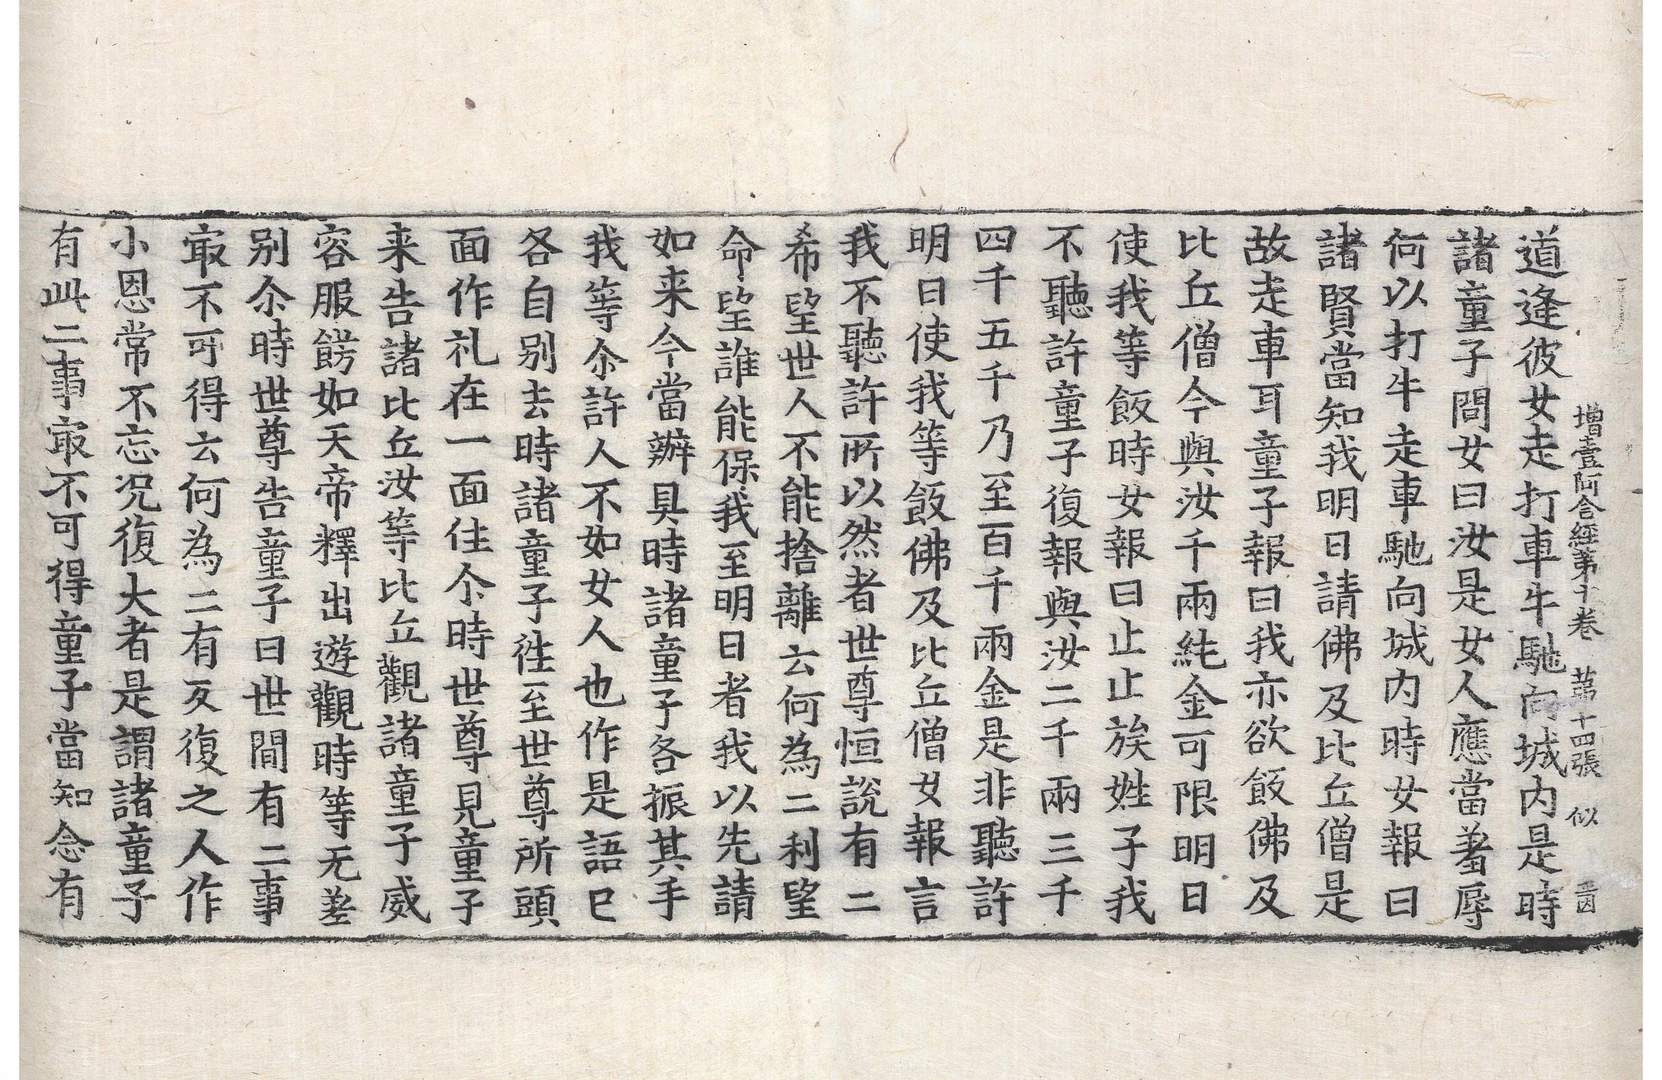 增壹阿含經第十卷 第十四張 似
道逢彼女走打車牛馳向城内是時
諸童子問女曰汝是女人應當羞辱
何以打牛走車馳向城内時女報曰
諸賢當知我明日請佛及比丘僧是
故走車耳童子報曰我亦欲飯佛及
比丘僧今與汝千兩純金可限明日
使我等飯時女報曰止止族姓子我
不聽許童子復報與汝二千兩三千
四千五千乃至百千兩金是非聽許
明日使我等飯佛及比丘僧女報言
我不聽許所以然者世尊恒說有二
希望世人不能捨離云何為二利望
命望誰能保我至明日者我以先請
如来今當辦具時諸童子各振其手
我等尒許人不如女人也作是語已
各自别去時諸童子徃至世尊所頭
面作礼在一面住尒時世尊見童子
来告諸比丘汝等比丘觀諸童子威
容服餝如天帝釋出遊觀時等无差
别尒時世尊告童子曰世間有二事
㝡不可得云何為二有反復之人作
小恩常不忘况復大者是謂諸童子
有此二事㝡不可得童子當知念有